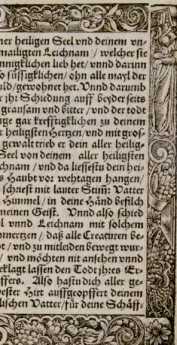 ner heiligen Seel vnd deinem vn-
mailigten Leichnam / welcher sie
inniglichen lieb het / vnnd darun
so süssigklichen / ohn alle mayl der
uld / gewohnet het. Vnnd darumb
r jhr Schiedung auff beyder seits
grausam vnd bitter / vnd der todt
nge gar krefftigklichen zu deinem
r heiligsten Hertzen / vnd mit gros-
gewalt trieb er dein aller heilig-
Seel von deinem aller heiligsten
chnam / vnd da liessestu dein hei-
s Haubt vor wehtagen hangen /
schriest mit lauter Stim: Vatter
Himmel / in deine Händ befilch
meinen Geist. Vnnd also schied
l vnnd Leichnam mit solchem
nmertzen / daß alle Creaturen be-
t / vnd zu mitleiden bewegt wur-
/ vnd möchten nit ansehen vnnd
eklagt lassen den Todt jhres Er-
ffers. Also hastu dich aller ge-
ester Hirt auffgeopffert deinem
lischen Vatter / für deine Schäff-